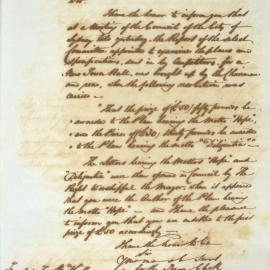 Sir
I have the honor to inform you that
at a Meeting of the Council of the City of
Sydney held yesterday, the Report of the Select
Committee appointed to examine the plans and
specifications, sent in by Competitors, for a
New Town Hall, was brought up by the Chairman
and read, when the following resolution was
carried.
"That the prize of £50/fifty pounds be
awarded to the Plan bearing the Motto "Hope",
and the Prize of £30/thirty pounds be awarded
to the Plan bearing the motto
The Letters bearing the Mottos "Hope" and
were then opened in Council by the
Right Worshipful the Mayor, when it appeared
that you were the Author of the Plan bearing
the Motto "Hope" and I have the pleasure
to inform you that you are entitled to the first
prize of £50 accordingly
I have the honor to be
Sir
Your ob Serv